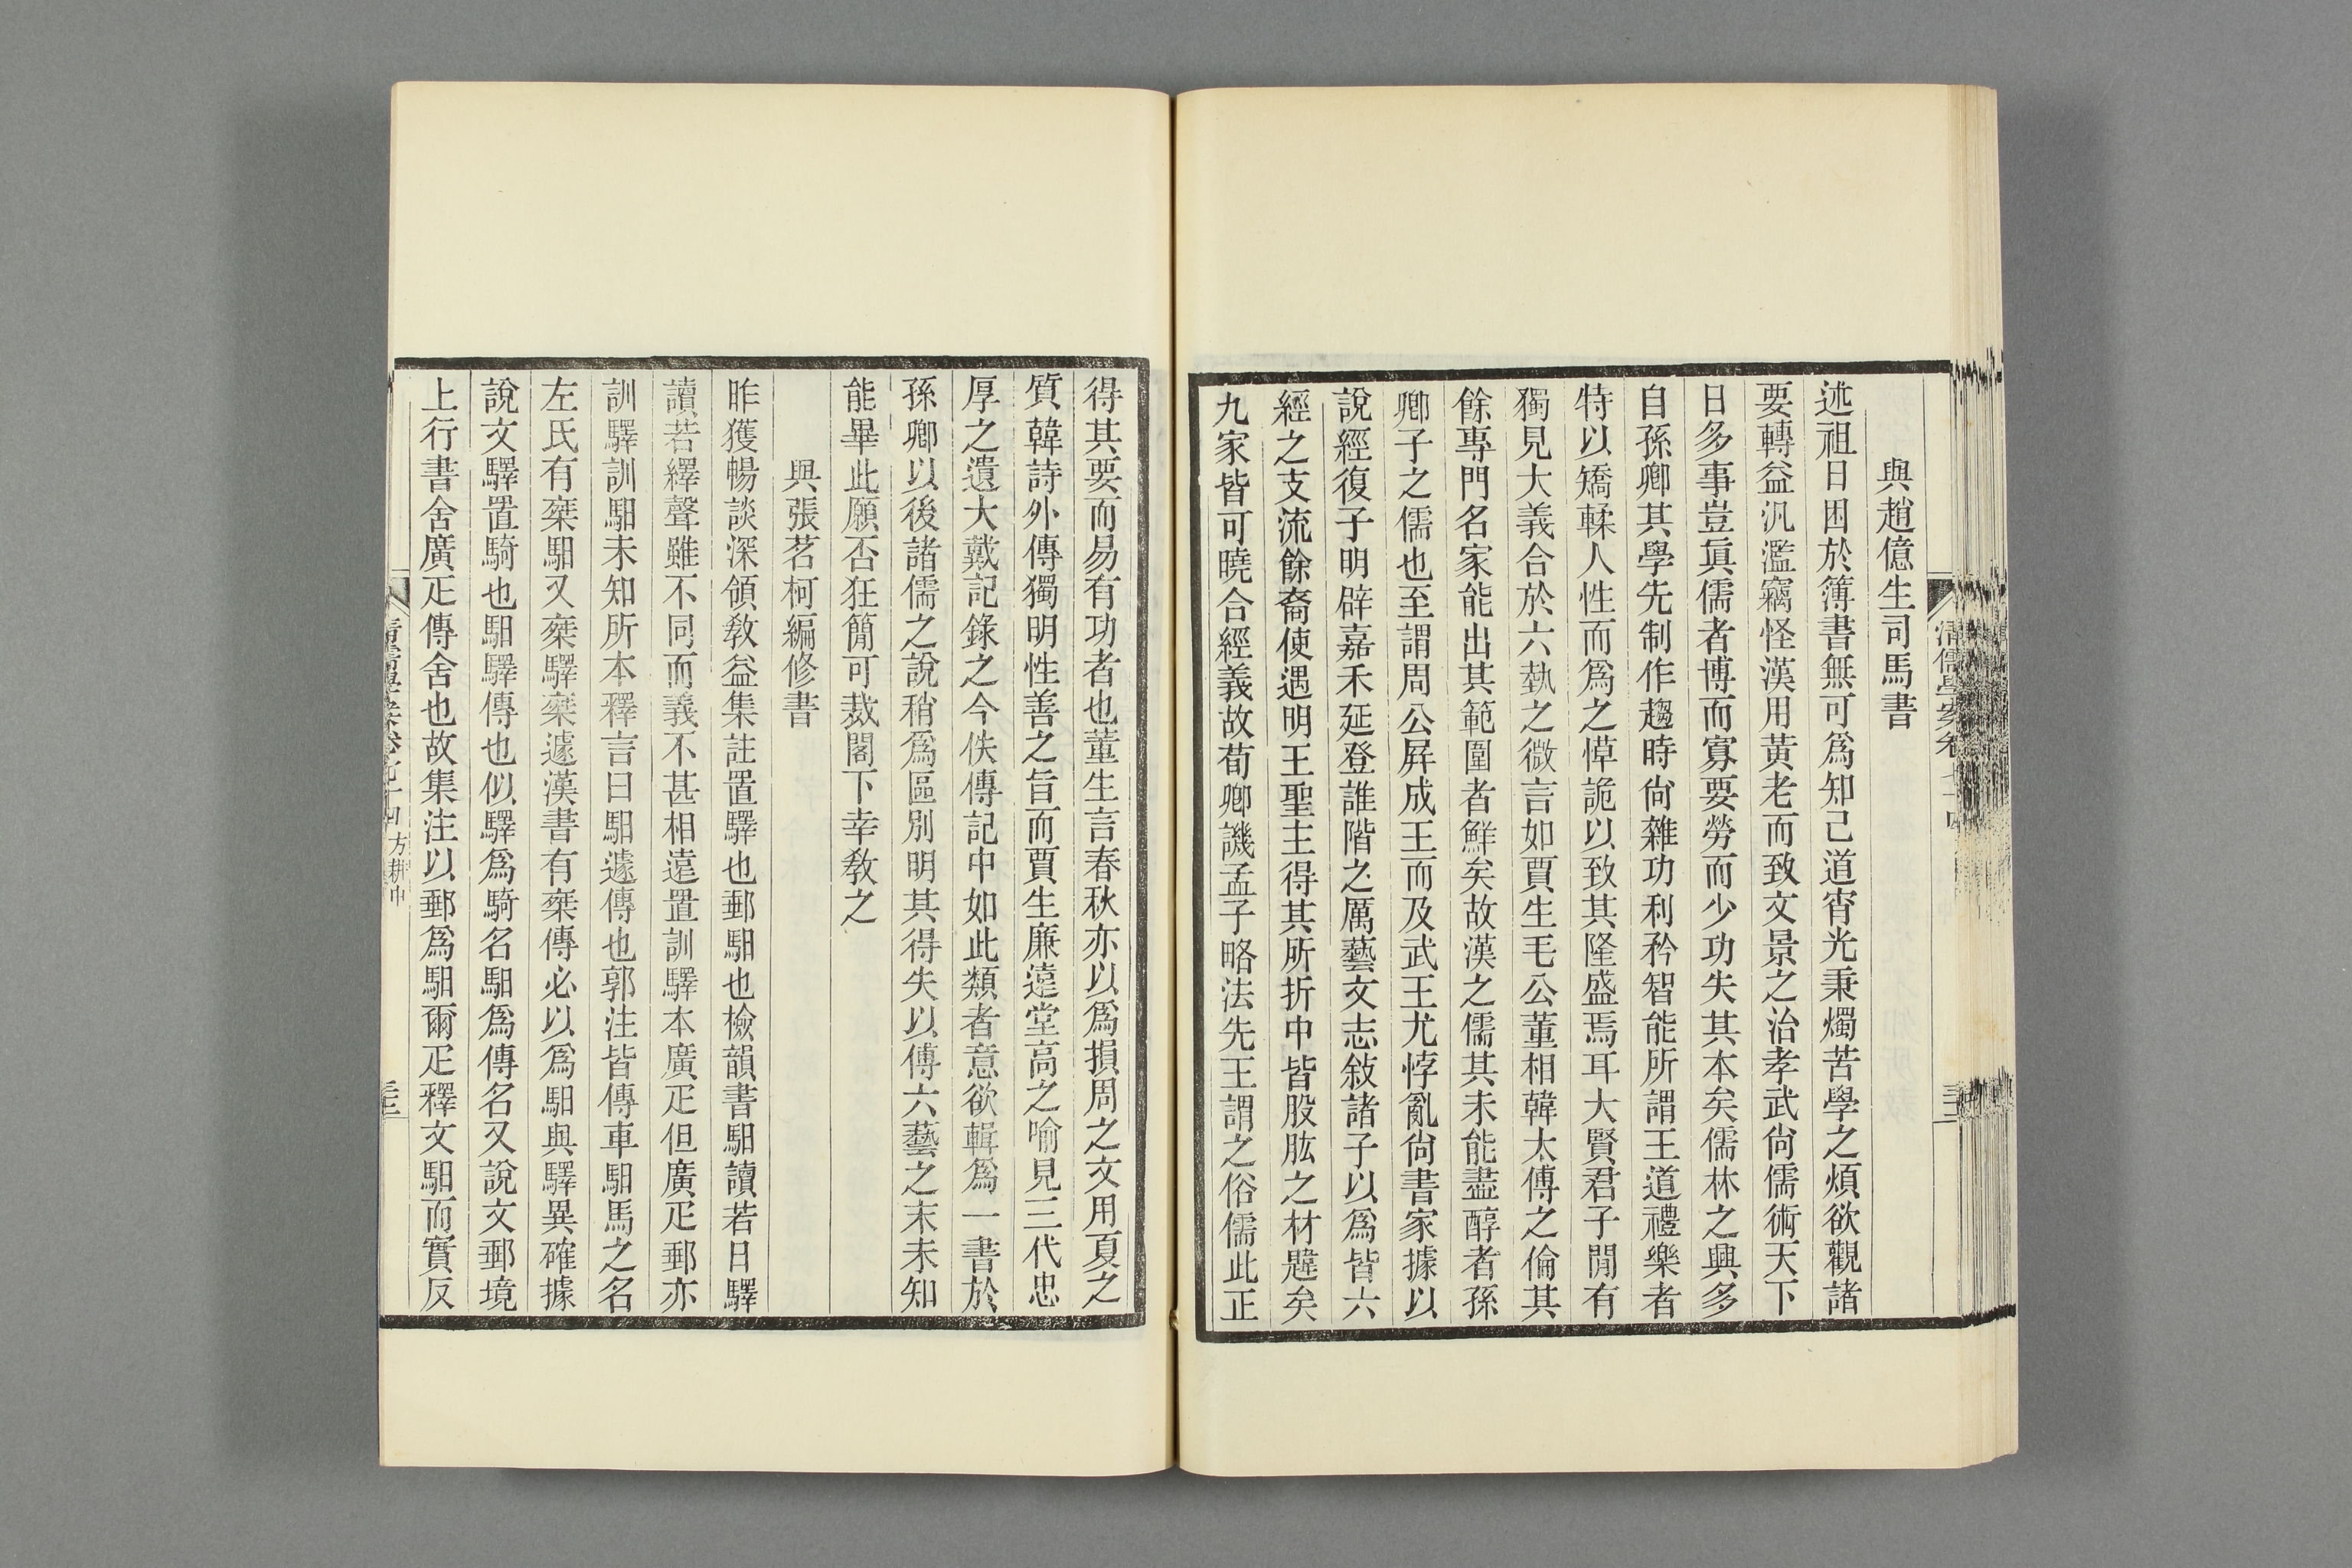 與趙億生司馬書
述祖日困於簿書無可爲知己道宵光秉燭苦學之煩欲觀諸
要轉益汎濫竊怪漢用黃老而致文景之治孝武尙儒術天下
日多事豈眞儒者博而寡要勞而少功失其本矣儒林之興多
自孫卿其學先制作趨時尙雜功利矜智能所謂王道禮樂者
特以矯輮人性而爲之愅詭以致其隆盛焉耳大賢君子閒有
獨見大義合於六埶之微言如賈生毛公董相韓太傅之倫其
餘專門名家能出其範圍者鮮矣故漢之儒其未能盡醇者孫
卿子之儒也至謂周公屛成王而及武王尤悖亂尙書家據以
說經復子明辟嘉禾延登誰階之厲藝文志敍諸子以爲皆六
經之支流餘裔使遇明王聖主得其所折中皆股肱之材韙矣
九家皆可曉合經義故荀卿譏孟子略法先王謂之俗儒此正
清儒學案卷七十四
得其要而易有功者也董生言春秋亦以爲損周之文用夏之
質韓詩外傳獨明性善之旨而賈生廉遠堂高之喻見三代忠
厚之遺大戴記錄之今佚傳記中如此類者意欲輯爲一書於
孫卿以後諸儒之說稍爲區別明其得失以傅六藝之末未知
能畢此願否狂簡可裁閣下幸敎之
與張茗柯編修書
昨獲暢談深領敎益集註置驛也郵馹也檢韻書馹讀若日驛
讀若繹聲雖不同而義不甚相遠置訓驛本廣疋但廣疋郵亦
訓驛訓馹未知所本釋言曰馹遽傳也郭注皆傳車馹馬之名
左氏有椉馹又椉驛椉遽漢書有椉傳必以爲馹與驛異確據
說文驛置騎也馹驛傳也似驛爲騎名馹爲傳名又說文郵境
上行書舍廣疋傳舍也故集注以郵爲馹爾疋釋文馹而實反